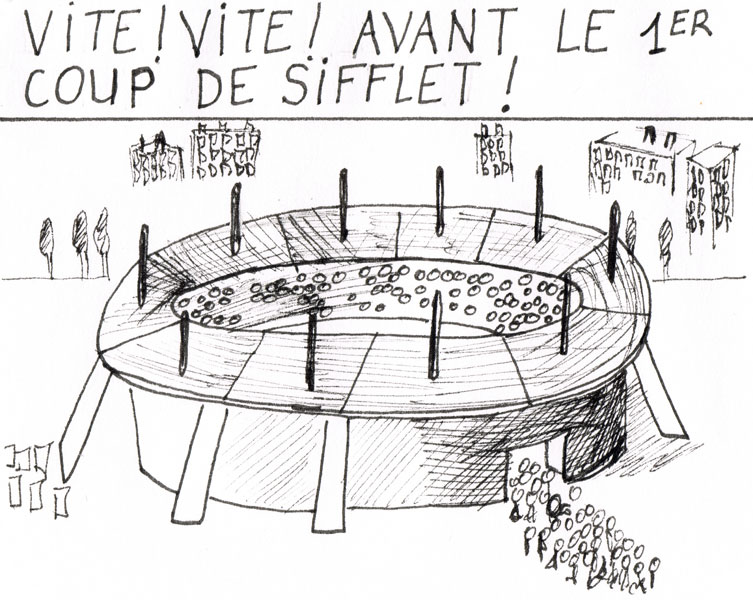 ViTE! ViTE! AVANT LE 1ER
COUP DE SiFFLET!